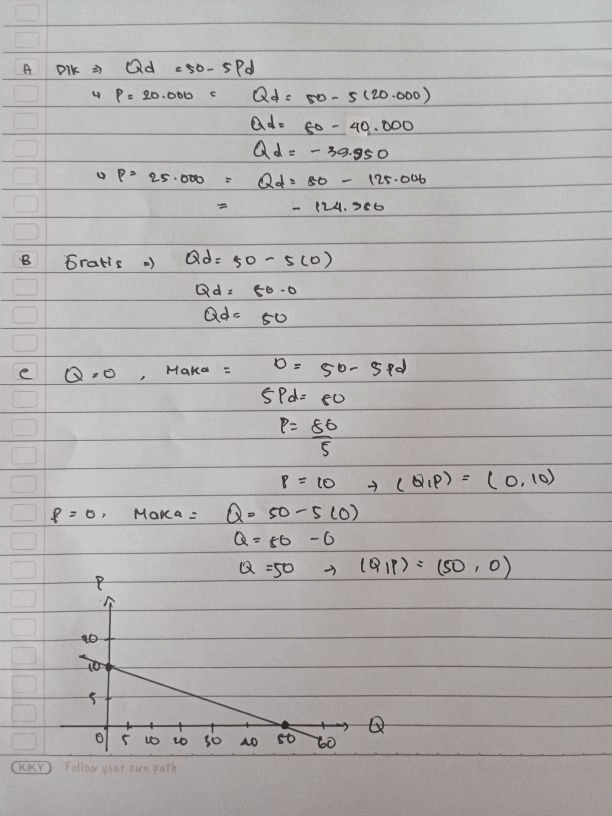 A Dik ⇒ Qd = 50 - 5Pd
↳ P = 20.000 = Qd = 50 - 5(20.000)
Qd = 50 - 40.000
Qd = - 39.950
↳ P = 25.000 = Qd = 50 - 125.000
= - 124.950
B Gratis ⇒ Qd = 50 - 5(0)
Qd = 50 - 0
Qd = 50
C Q = 0, Maka = 0 = 50 - 5Pd
5Pd = 50
P = 50
5
P = 10 → (Q,P) = (0,10)
P = 0, Maka = Q = 50 - 5(0)
Q = 50 - 0
Q = 50 → (Q,P) = (50,0)
P
20
10
5
0 5 10 20 30 40 50 60 Q
KIKY Follow your own path